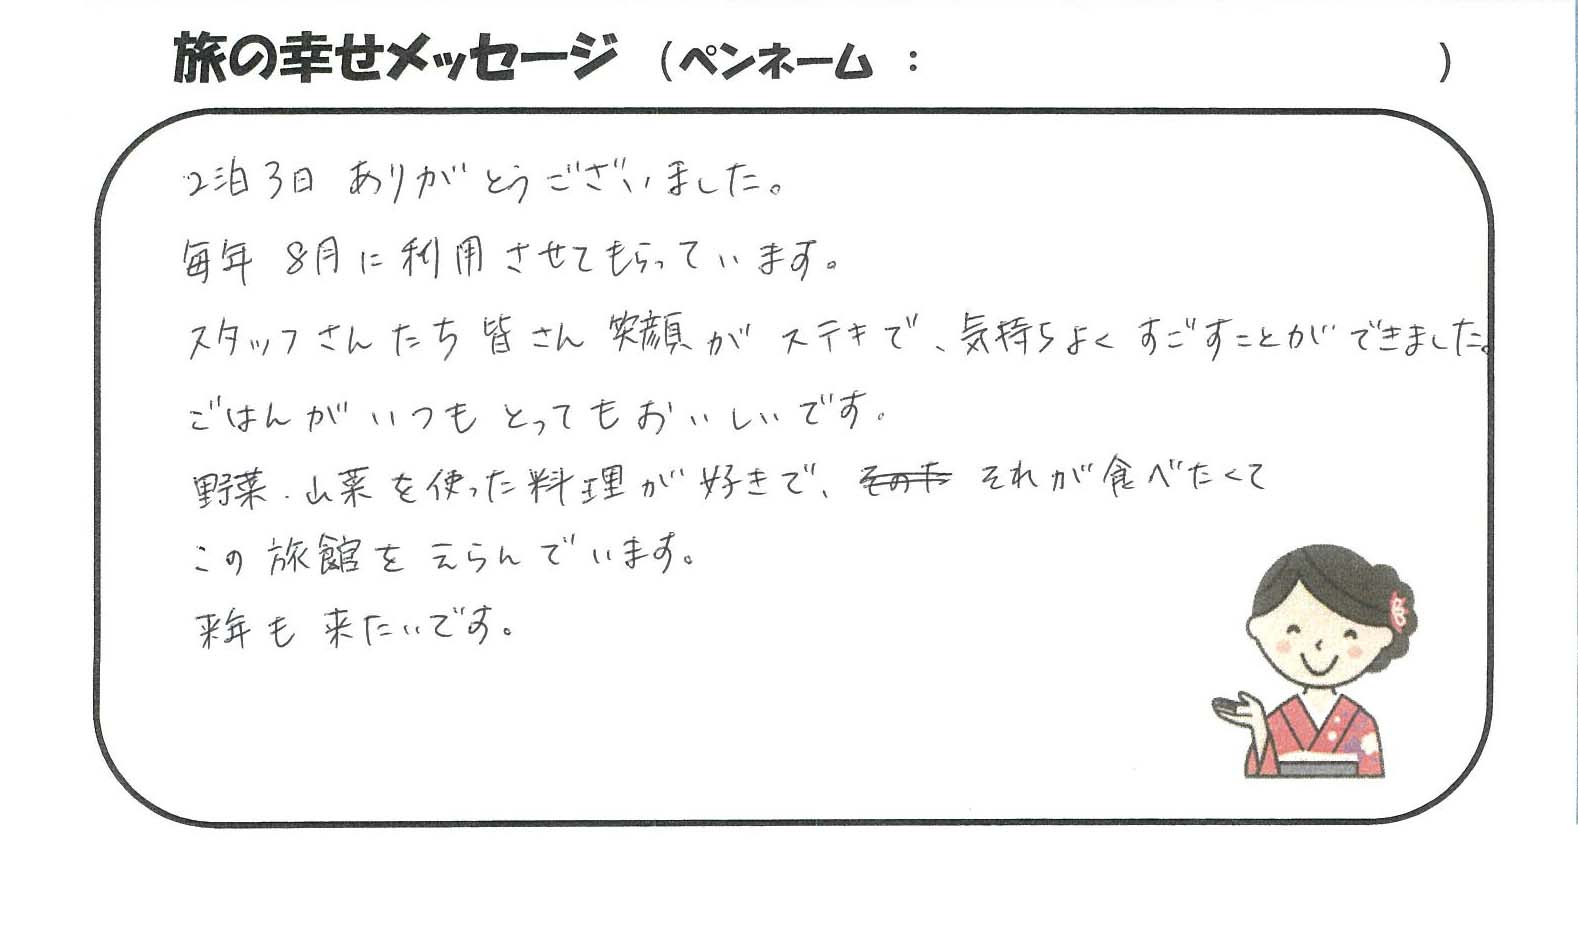 旅の幸せメッセージ (ペンネーム : )
2泊3日 ありがとうございました。
毎年 8月に利用させてもらっています。
スタッフさんたち皆さん笑顔がステキで、気持ちよくすごすことができました。
ごはんがいつもとってもおいしいです。
野菜・山菜を使った料理が好きで、そのた それが食べたくて
この旅館をえらんでいます。
来年も来たいです。